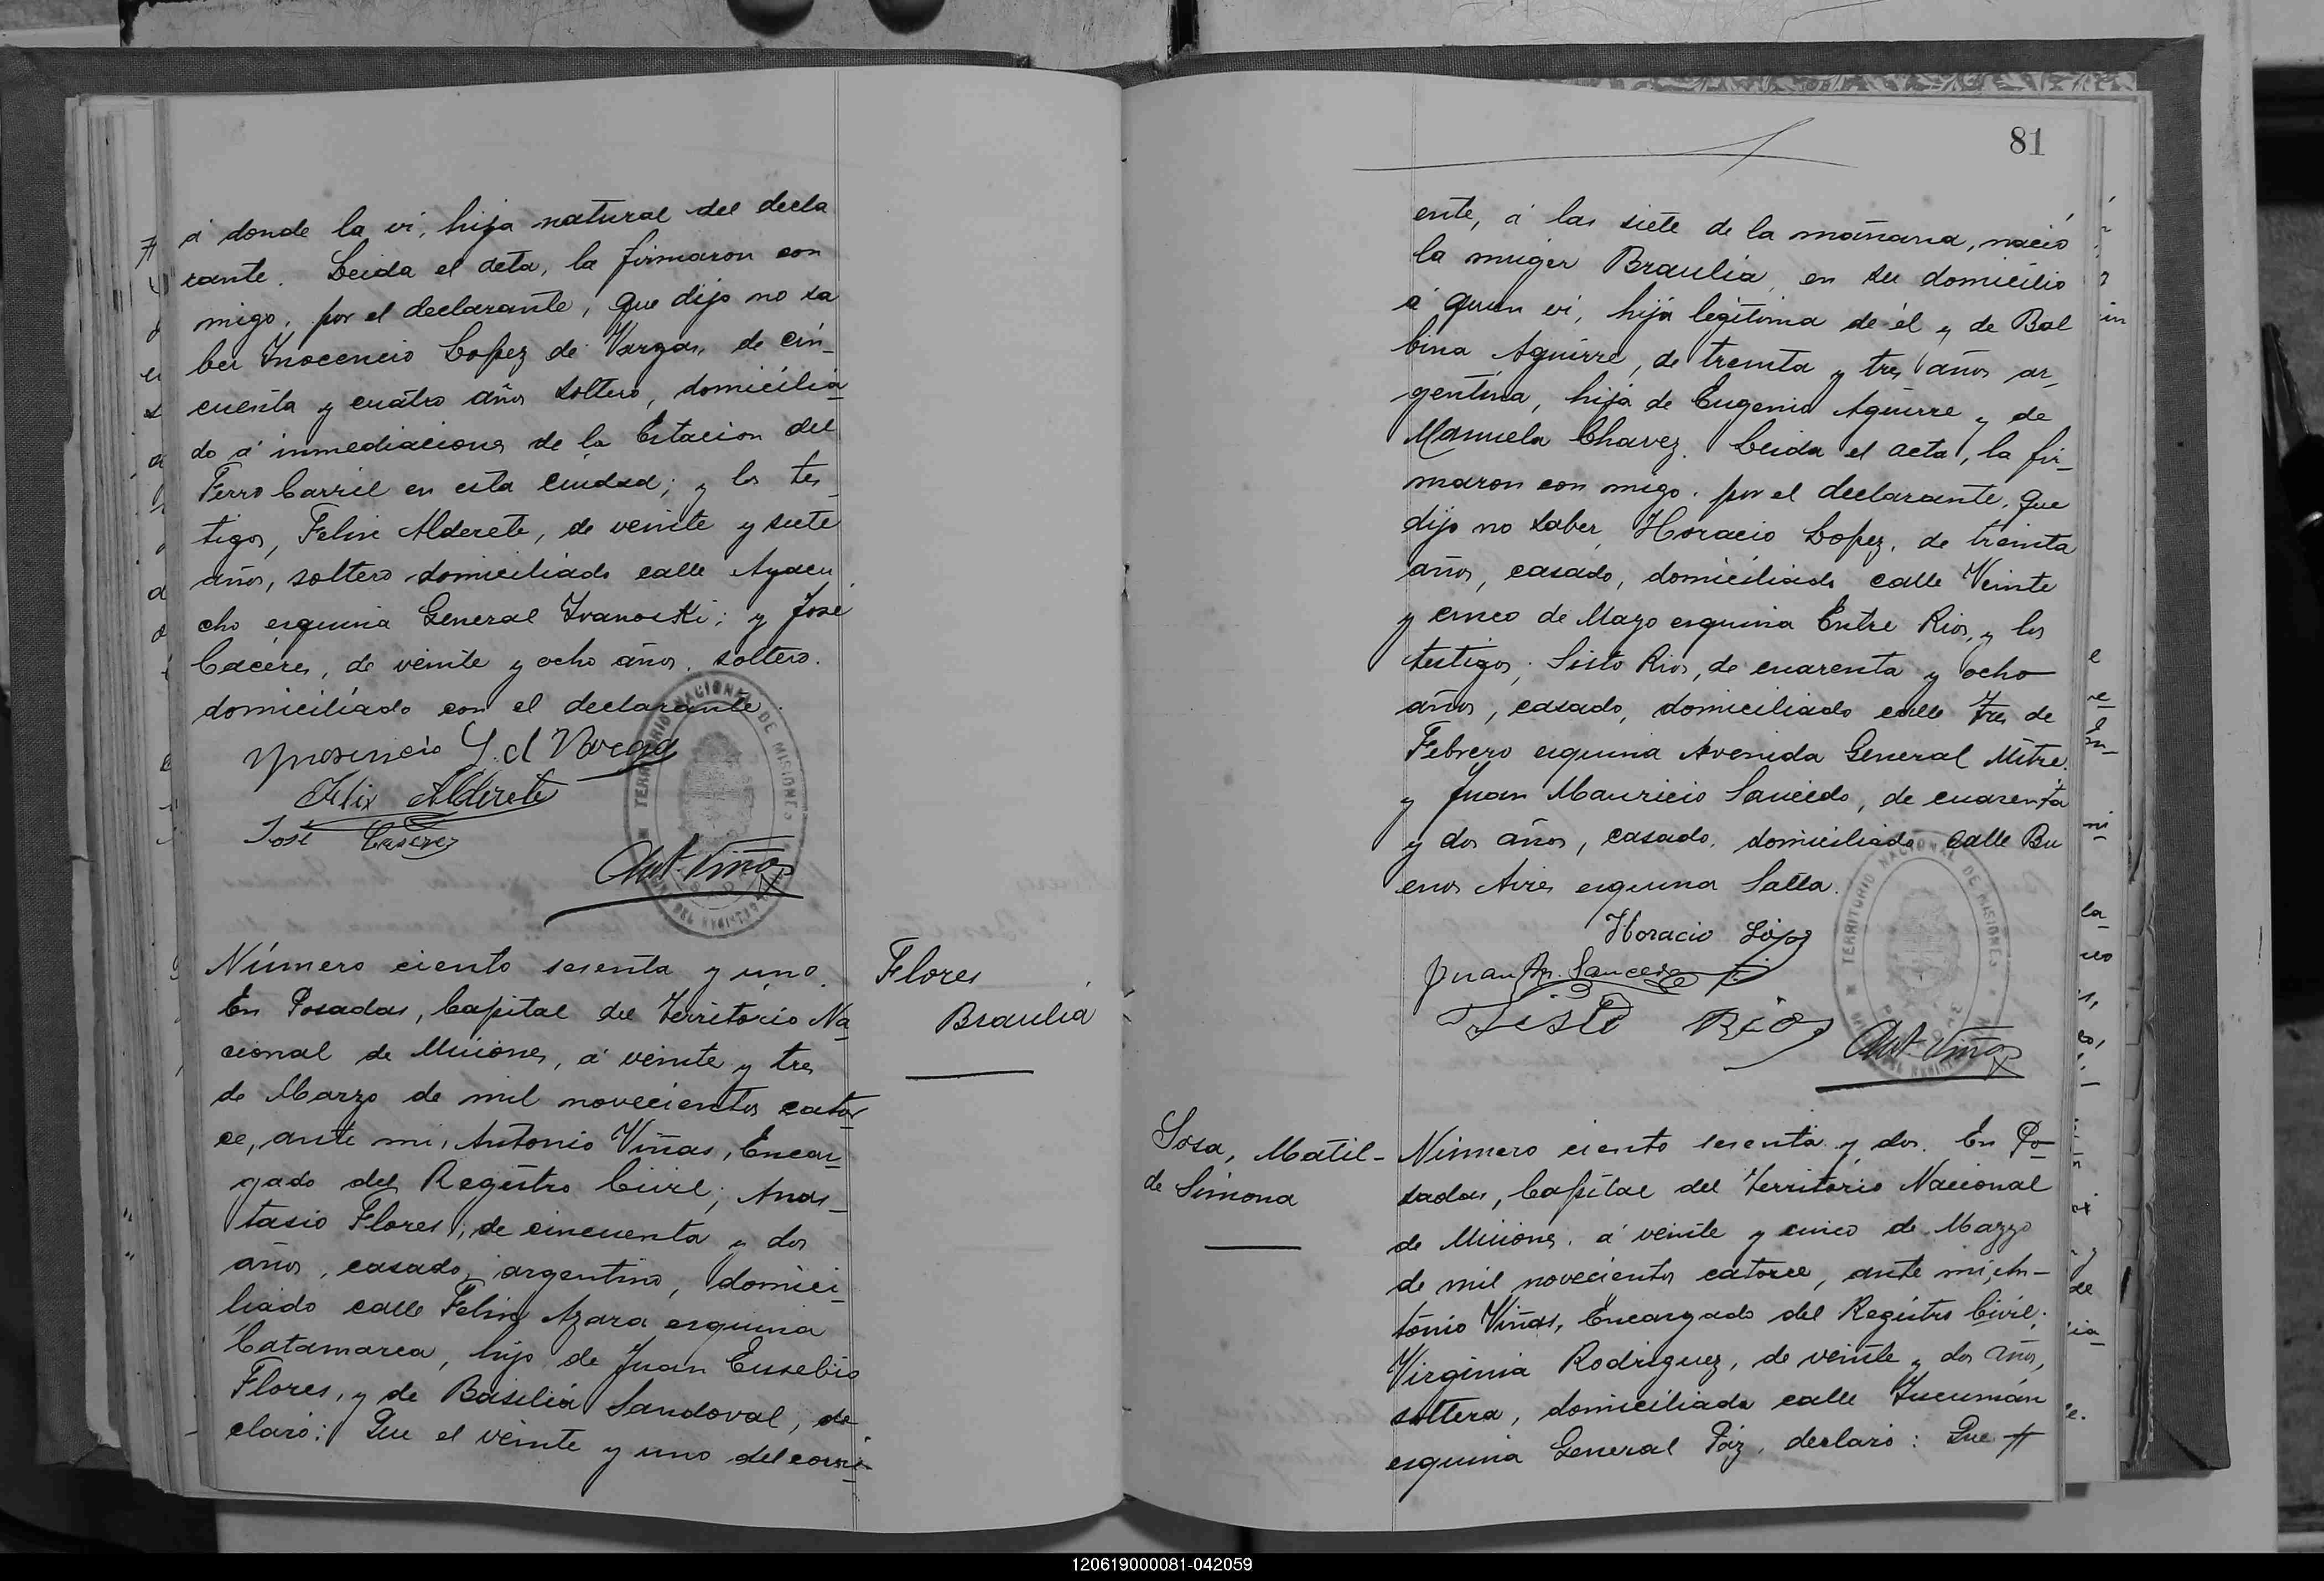 á donde la vi, hija natural del decla
rante. Leida el acta, la firmaron con
migo, por el declarante, que dijo no sa
ber Inocencio Lopez de Vargas, de cin-
cuenta y cuatro años soltero, domicilia
do á inmediaciones de la Estacion del
Ferro Carril en esta ciudad; y los tes-
tigos, Felix Alderete, de veinte y siete
años, soltero domiciliado calle Ayacu
cho esquina General Ivanoski; y José
Caceres, de veinte y ocho años, soltero.
domiciliado con el declarante.
Ynosencio L. d Vargas
Felix Alderete
José Caserez
Ant. Viñas
TERRITORIO NACIONAL DE MISIONES
Número ciento sesenta y uno.
En Posadas, Capital del Territorio Na
cional de Misiones, á veinte y tres
de Marzo de mil novecientos cator
ce, ante mi, Antonio Viñas, Encar-
gado del Registro Civil; Anas-
tasio Flores, de cincuenta y dos
años, casado, argentino, domici-
liado calle Felix Azara esquina
Catamarca, hijo de Juan Eusebio
Flores, y de Basilia Sandoval, de
claró: Que el veinte y uno del corri-
Flores
Braulia
81
ente, á las siete de la mañana, nació
la muger Braulia, en su domicilio
á quien vi, hija legitima de él y de Bal
bina Aguirre, de treinta y tres años ar-
gentina, hija de Eugenio Aguirre y de
Manuela Chavez. Leida el acta, la fir-
maron con migo, por el declarante, que
dijo no saber, Horacio Lopez, de treinta
años, casado, domiciliado calle Veinte
y cinco de Mayo esquina Entre Rios, y los
testigos, Sisto Rios, de cuarenta y ocho
años, casado, domiciliado calle Tres de
Febrero esquina Avenida General Mitre,
y Juan Mauricio Saucedo, de cuarenta
y dos años, casado, domiciliado calle Bu
enos Aires esquina Salta.
Horacio López
Juan M. Saucedo
Sisto Rios
Ant. Viñas
TERRITORIO NACIONAL DE MISIONES
Sosa, Matil-
de Simona
Número ciento sesenta y dos. En Po
sadas, Capital del Territorio Nacional
de Misiones, á veinte y cinco de Marzo
de mil novecientos catorce, ante mi, An-
tonio Viñas, Encargado del Registro Civil;
Virginia Rodriguez, de veinte y dos años,
soltera, domiciliada calle Tucumán
esquina General Paz, declaró: Que
120619000081-042059